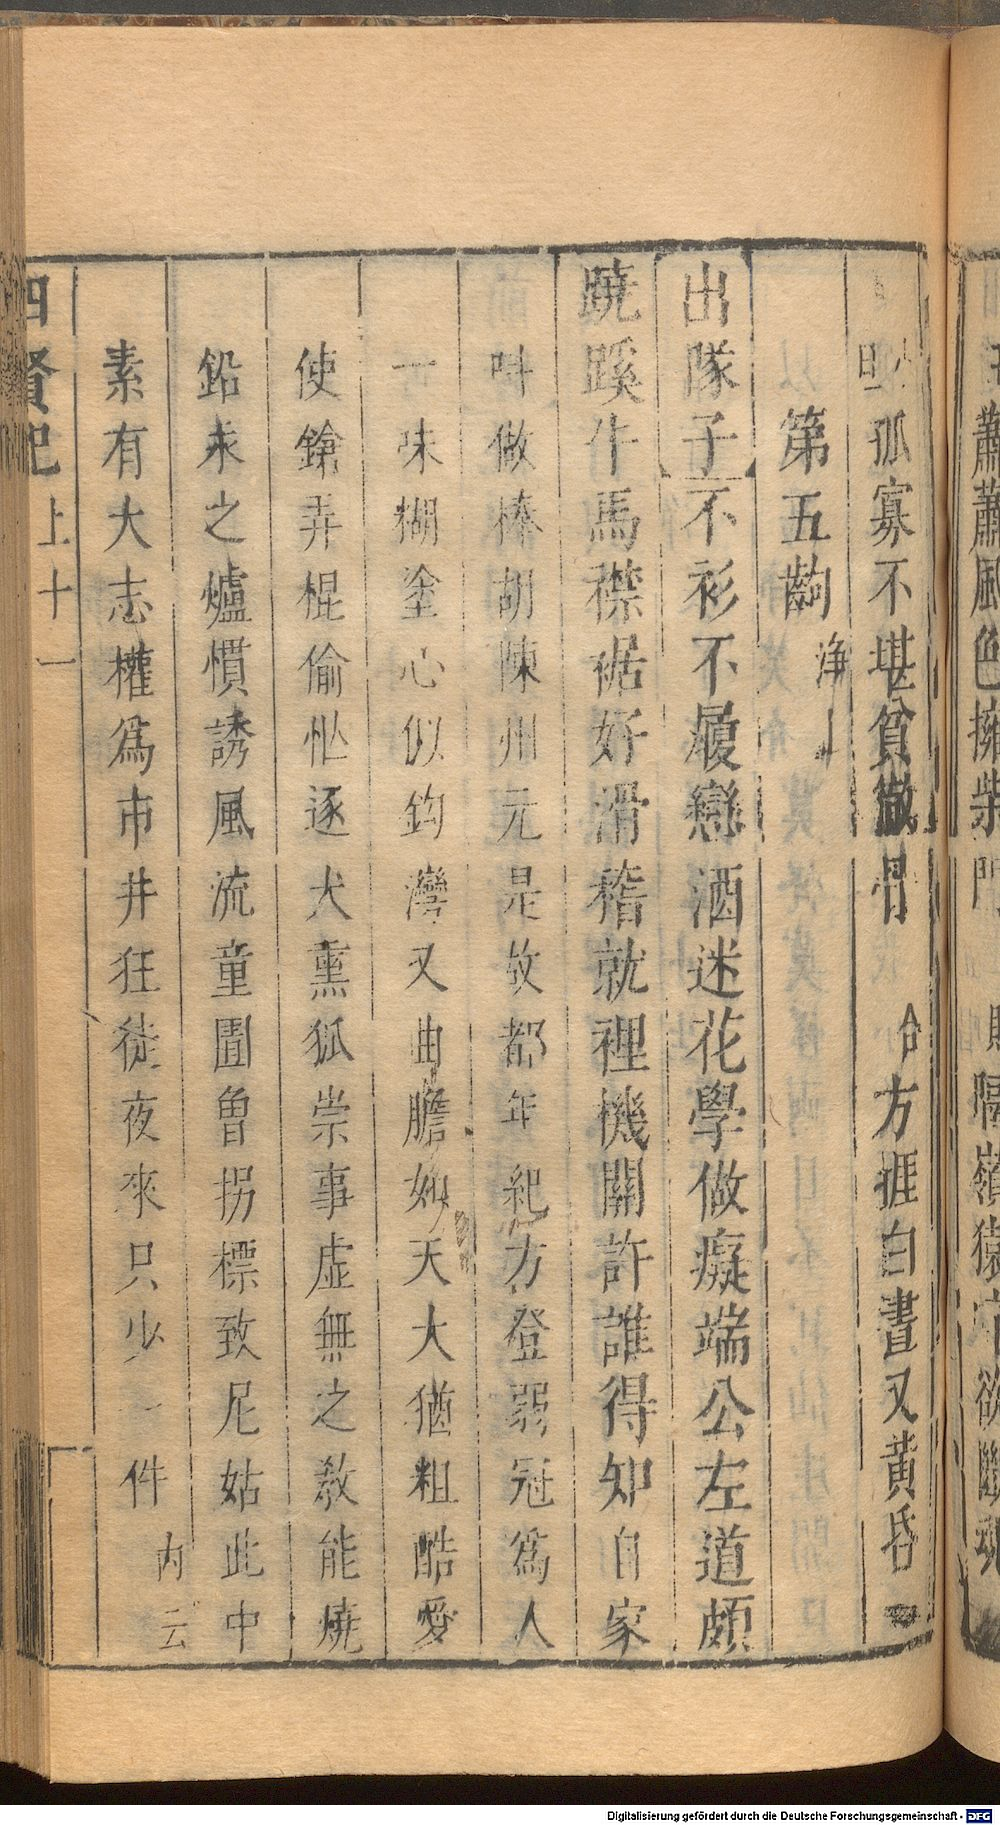 孤寡不堪貧徹骨 合 方捱白晝又黃昏
第五齣 淨
出隊子 不衫不履戀酒迷花學做癡端公左道頗
蹺蹊牛馬襟裾好滑稽就裡機關許誰得知 自家
叫做棒胡陳州元是故都年紀方登弱冠爲人
一味糊塗心似鈎灣又曲膽如天大猶粗酷愛
使鎗弄棍偷他逐犬熏狐崇事虛無之教能燒
鉛汞之爐慣誘風流童圊曾拐標致尼姑此中
素有大志權爲市井狂徒夜來只少一件 內云
四賢記 上 十一
蕭蕭風色擁柴門 隔嶺猿 欲斷魂
Digitalisierung gefördert durch die Deutsche Forschungsgemeinschaft - DFG